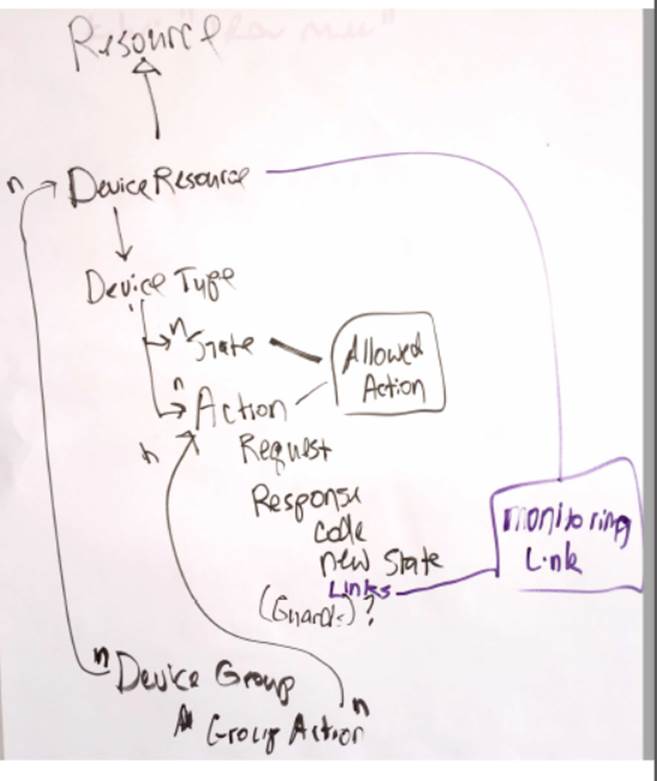 Resource
n
Device Resource
Device Type
n
State
Allowed
Action
n
Action
n
Request
Response
code
new State
Links
(Guards)?
monitoring
Link
n
Device Group
n
Group Action